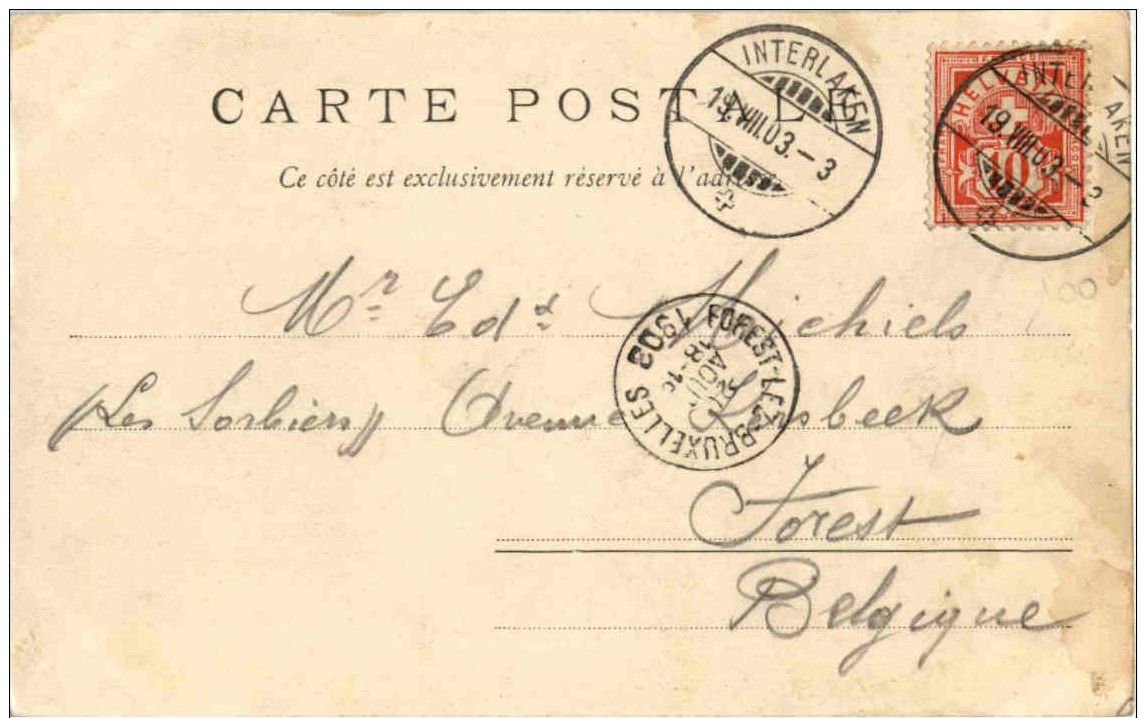 CARTE POSTALE
Ce côté est exclusivement réservé à l'adresse
INTERLAKEN
19.VIII.03.–3
HELVETIA
10
INTERLAKEN
19.VIII.03.–3
100
Mr Edd Michiels
(Les Sorbiers) Avenue Kersbeek
Forest
Belgique
FOREST-LEZ-BRUXELLES
1903
AOUT